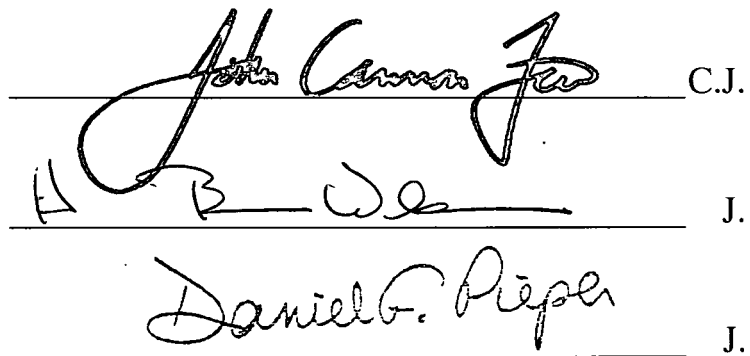 John Cannon Few C.J.
H Bruce Williams J.
Daniel F. Pieper J.